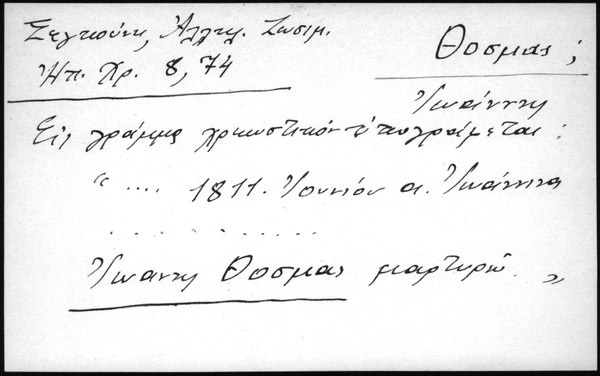 Σεγκούνη, Αλληλ. Ζωσιμ.
Ἠπ. Χρ. 8, 74
Θοσμας;
Ἰωάννης
Εἰς γράμμα χρεωστικόν ὑπογράφεται:
“ .... 1811. Ἰουνίου α. Ἰωάννινα
. . . . . . . . . .
Ἰωαννης Θοσμας μαρτυρῶ. ”